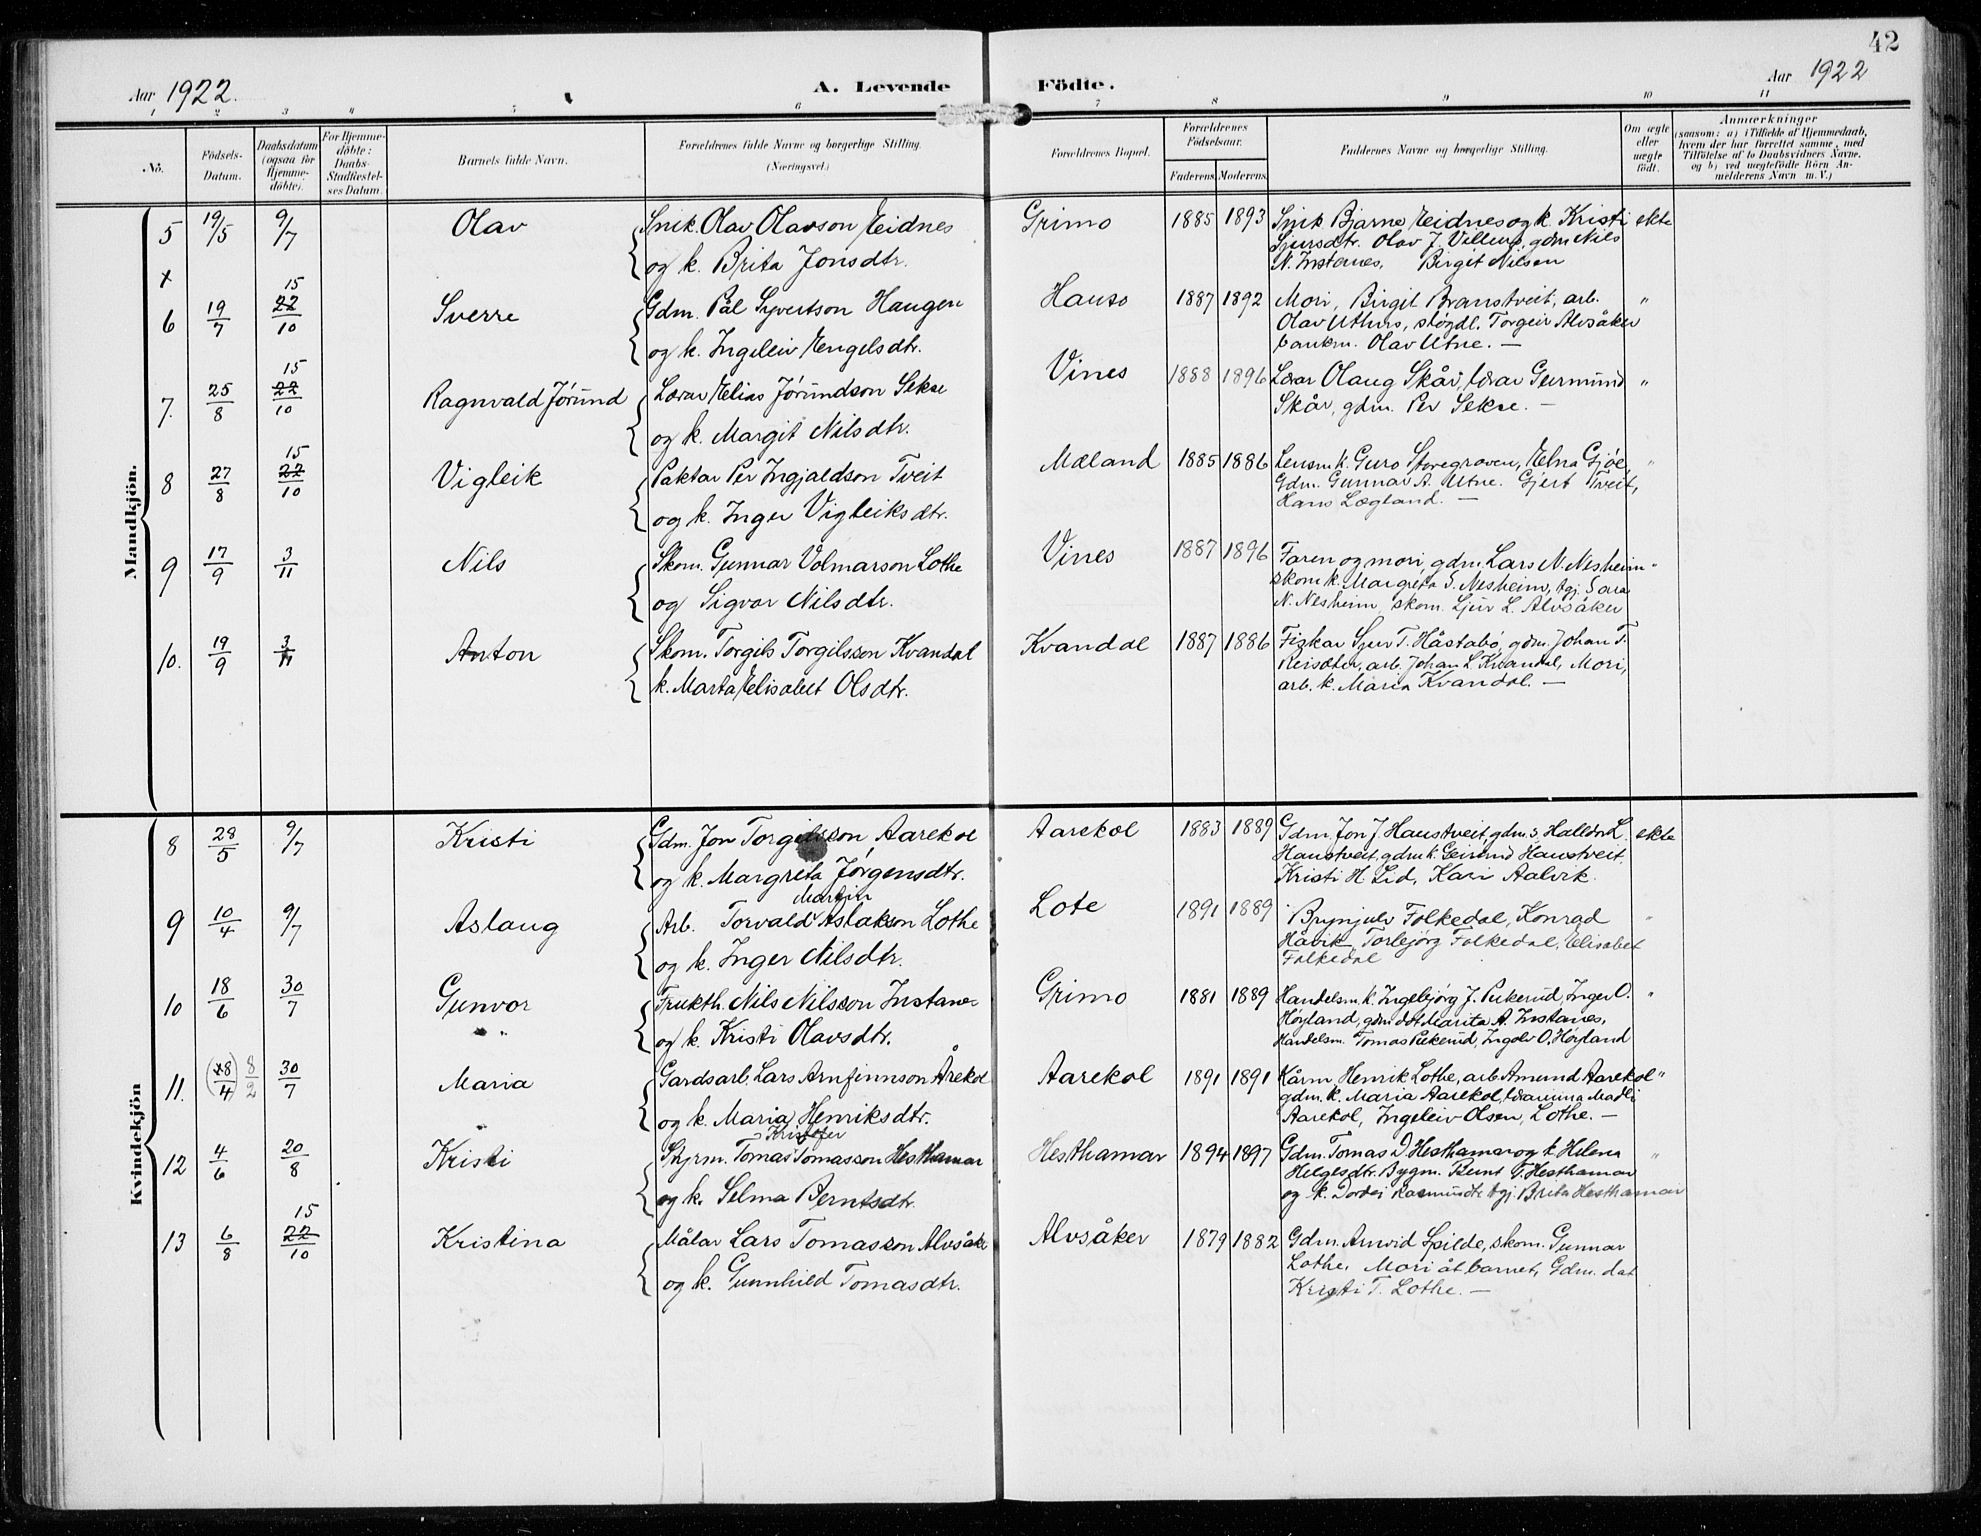 42
Aar 1922.
A. Levende
Födte.
Aar 1922
1 2 3 4 5 6 7 8 9 10 11
Nô.
Födsels-Datum.
Daabsdatum (ogsaa for Hjemmedöbte).
For Hjemmedöbte: Daabs-Stadfæstelses Datum.
Barnets fulde Navn.
Forældrenes fulde Navne og borgerlige Stilling. (Næringsvei.)
Forældrenes Bopæl.
Forældrenes Födselsaar.
Faderens. Moderens.
Faddernes Navne og borgerlige Stilling.
Om ægte eller uægte födt.
Anmærkninger
(saasom: a) i Tilfælde af Hjemmedaab, hvem der har forrettet samme, med Tilföielse af to Daabsvidners Navne, og b) ved uægtefödte Börn Anmelderens Navn m. V.)
Mandkjön.
5 19/5 9/7 Olav Snik. Olav Olavson Eidnes Grimo 1885 1893 Snik Bjarne Eidnes og k. Kristi ekte
og k. Brita Jonsdtr. Sjursdtr. Olav J. Villure, gdm Nils
x N. Instanes, Birgit Nilsen
6 19/7 15 22/10 Sverre Gdm. Pål Syvertson Haugen Hauso 1887 1892 Mori, Birgit Branstveit, arb. "
og k. Ingeleiv Engelsdtr. Olav Uthus, sløgdl. Torgeir Alvsåker
bankm. Olav Utne. —
7. 25/8 15 22/10 Ragnvald Jórund Lærar Elias Jórundson Sekse Vines 1888 1896 Lærar Olaug Skår, lærar Geirmund "
og k. Margit Nilsdtr. Skår, gdm. Per Sekse. —
8 27/8 15 22/10 Vigleik Paktar Per Ingjaldson Tveit Mæland 1885 1886 Lensm. k. Guro Storegraven, Elna Gjøe, "
og k. Inger Vigleiksdtr. Gdm. Gunnar A. Utne. Gjert Tveit,
Hans Lægland. —
9 17/9 3/11 Nils Skom. Gunnar Volmarson Lothe Vines 1887 1896 Faren og mori, gdm. Lars N. Nesheim "
og Sigvor Nilsdtr. Skom k. Margreta S. Nesheim, tgj. Sara
N. Nesheim, skom. Sjur L. Alvsåker
10. 19/9 3/11 Anton Skom. Torgils Torgilsson Kvandal Kvandal 1887 1886 Fiskar Sjur T. Håstabø, gdm. Johan T.
k. Marta Elisabet Olsdtr. Reisæter, arb. Johan L. Kvandal, Mori,
arb. k. Maria Kvandal. —
Kvindekjön
8 28/5 9/7 Kristi Gdm. Jon Torgilsson Aarekol Aarekol 1883 1889 Gdm. Jon J. Haustveit, gdm. s. Halldor L. ekte
og k. Margreta Jørgensdtr. Haustveit, gdm k. Geirund Haustveit,
Kristi H. Lid, Kari Aalvik.
9 10/4 9/7 Aslaug Arb. Torvald Martin Aslakson Lothe Lote 1891 1889 Brynjulv Folkedal, Konrad "
og k. Inger Nilsdtr. Håvik, Torbjørg Folkedal, Elisabet
Folkedal
10 18/6 30/7 Gunvor Frukth. Nils Nilsson Instanes Grimo 1881 1889 Handelsm. k. Ingebjørg J. Pukerud, Inger O. "
og k. Kristi Olavsdtr. Høyland, gdm dot Marita A. Instanes,
Handelsm. Tomas Pukerud, Ingolv O. Høyland
11. (28/4) 8/2 30/7 Maria Gardsarb. Lars Arnfinnson Årekol Aarekol 1891 1891 Kårm. Henrik Lothe, arb. Amund Aarekol "
og k. Maria Henriksdtr. gdm. k. Maria Aarekol, lærarinna Madli
Aarekol, Ingeleiv Olsen, Lothe. —
12 4/6 20/8 Kristi Styrm. Tomas Kristofer Tomasson Hesthamar Hesthamar 1894 1897 Gdm. Tomas D Hesthamar og k Helena "
og k. Selma Berntsdtr. Helgesdtr. Bygm. Bernt T. Hesthamar
og k. Dordei Rasmusdtr tgj. Brita Hesthamar
13 6/8 15 22/10 Kristina Målar Lars Tomasson Alvsåker Alvsåker 1879 1882 Gdm. Arnvid Spilde, skom. Gunnar
og k. Gunnhild Tomasdtr. Lothe, Mori åt barnet, Gdm. dat
Kristi T. Lothe. —